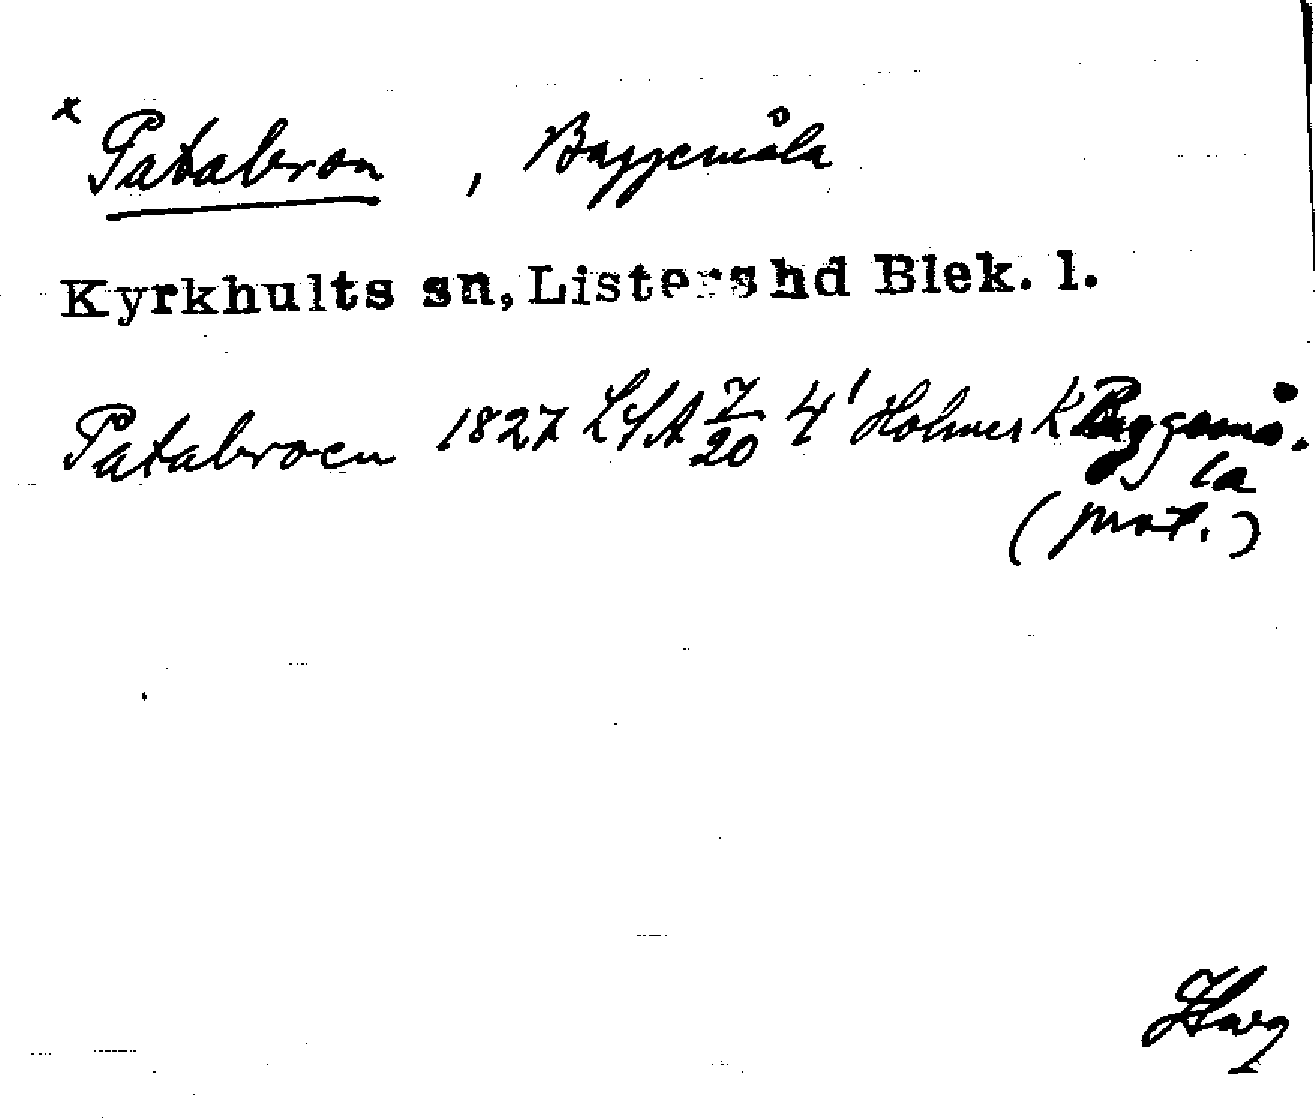 x Patabron, Baggemåla
Kyrkhults sn, Listers hd Blek. l.
Patabroen 1827 LSA 7/20 4' Holmer K Baggemå-
la
(prot.)